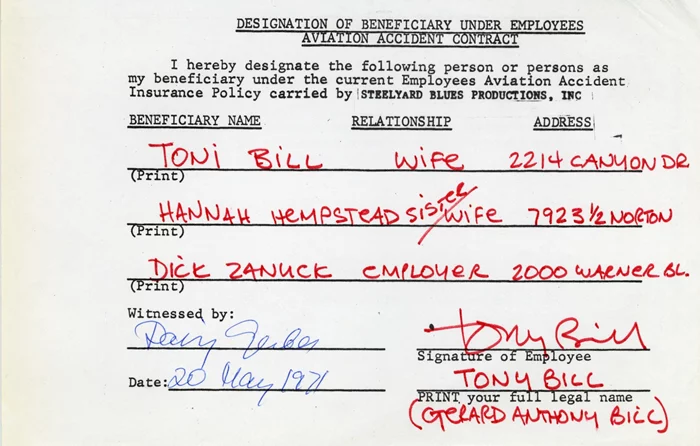 DESIGNATION OF BENEFICIARY UNDER EMPLOYEES
AVIATION ACCIDENT CONTRACT
I hereby designate the following person or persons as
my beneficiary under the current Employees Aviation Accident
Insurance Policy carried by STEELYARD BLUES PRODUCTIONS, INC
BENEFICIARY NAME RELATIONSHIP ADDRESS
TONI BILL WIFE 2214 CANYON DR
(Print)
HANNAH HEMPSTEAD SISTER/WIFE 7923 1/2 NORTON
(Print)
DICK ZANUCK EMPLOYER 2000 WARNER BL.
(Print)
Witnessed by:
Tony Bill
Signature of Employee
Date: 20 May 1971
TONY BILL
PRINT your full legal name
(GERARD ANTHONY BILL)